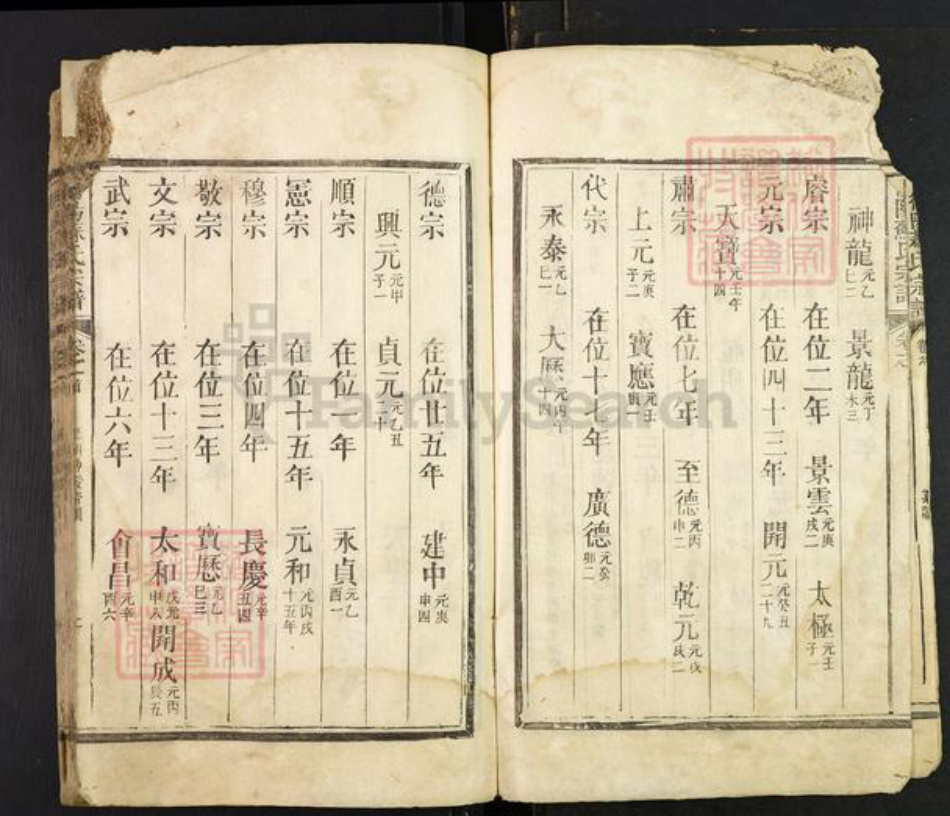 神龍元乙巳二 景龍元丁未三
睿宗 在位二年 景雲元庚戌二 太極元壬子一
元宗 在位四十三年 開元元癸丑二十九
天寶元壬午十四
肅宗 在位七年 至德元丙申二 乾元元戊戌二
上元元庚子二 寶應元壬寅一
代宗 在位十七年 廣德元癸卯二
永泰元乙巳一 大厯元丙午十四
德宗 在位廿五年 建中元庚申四
興元元甲子一 貞元元乙丑二十
順宗 在位一年 永貞元乙酉一
憲宗 在位十五年 元和元丙戌十五年
穆宗 在位四年 長慶元辛丑四
敬宗 在位三年 寶厯元乙巳三
文宗 在位十三年 太和戊元申八 開成元丙辰五
武宗 在位六年 會昌元辛酉六
FamilySearch